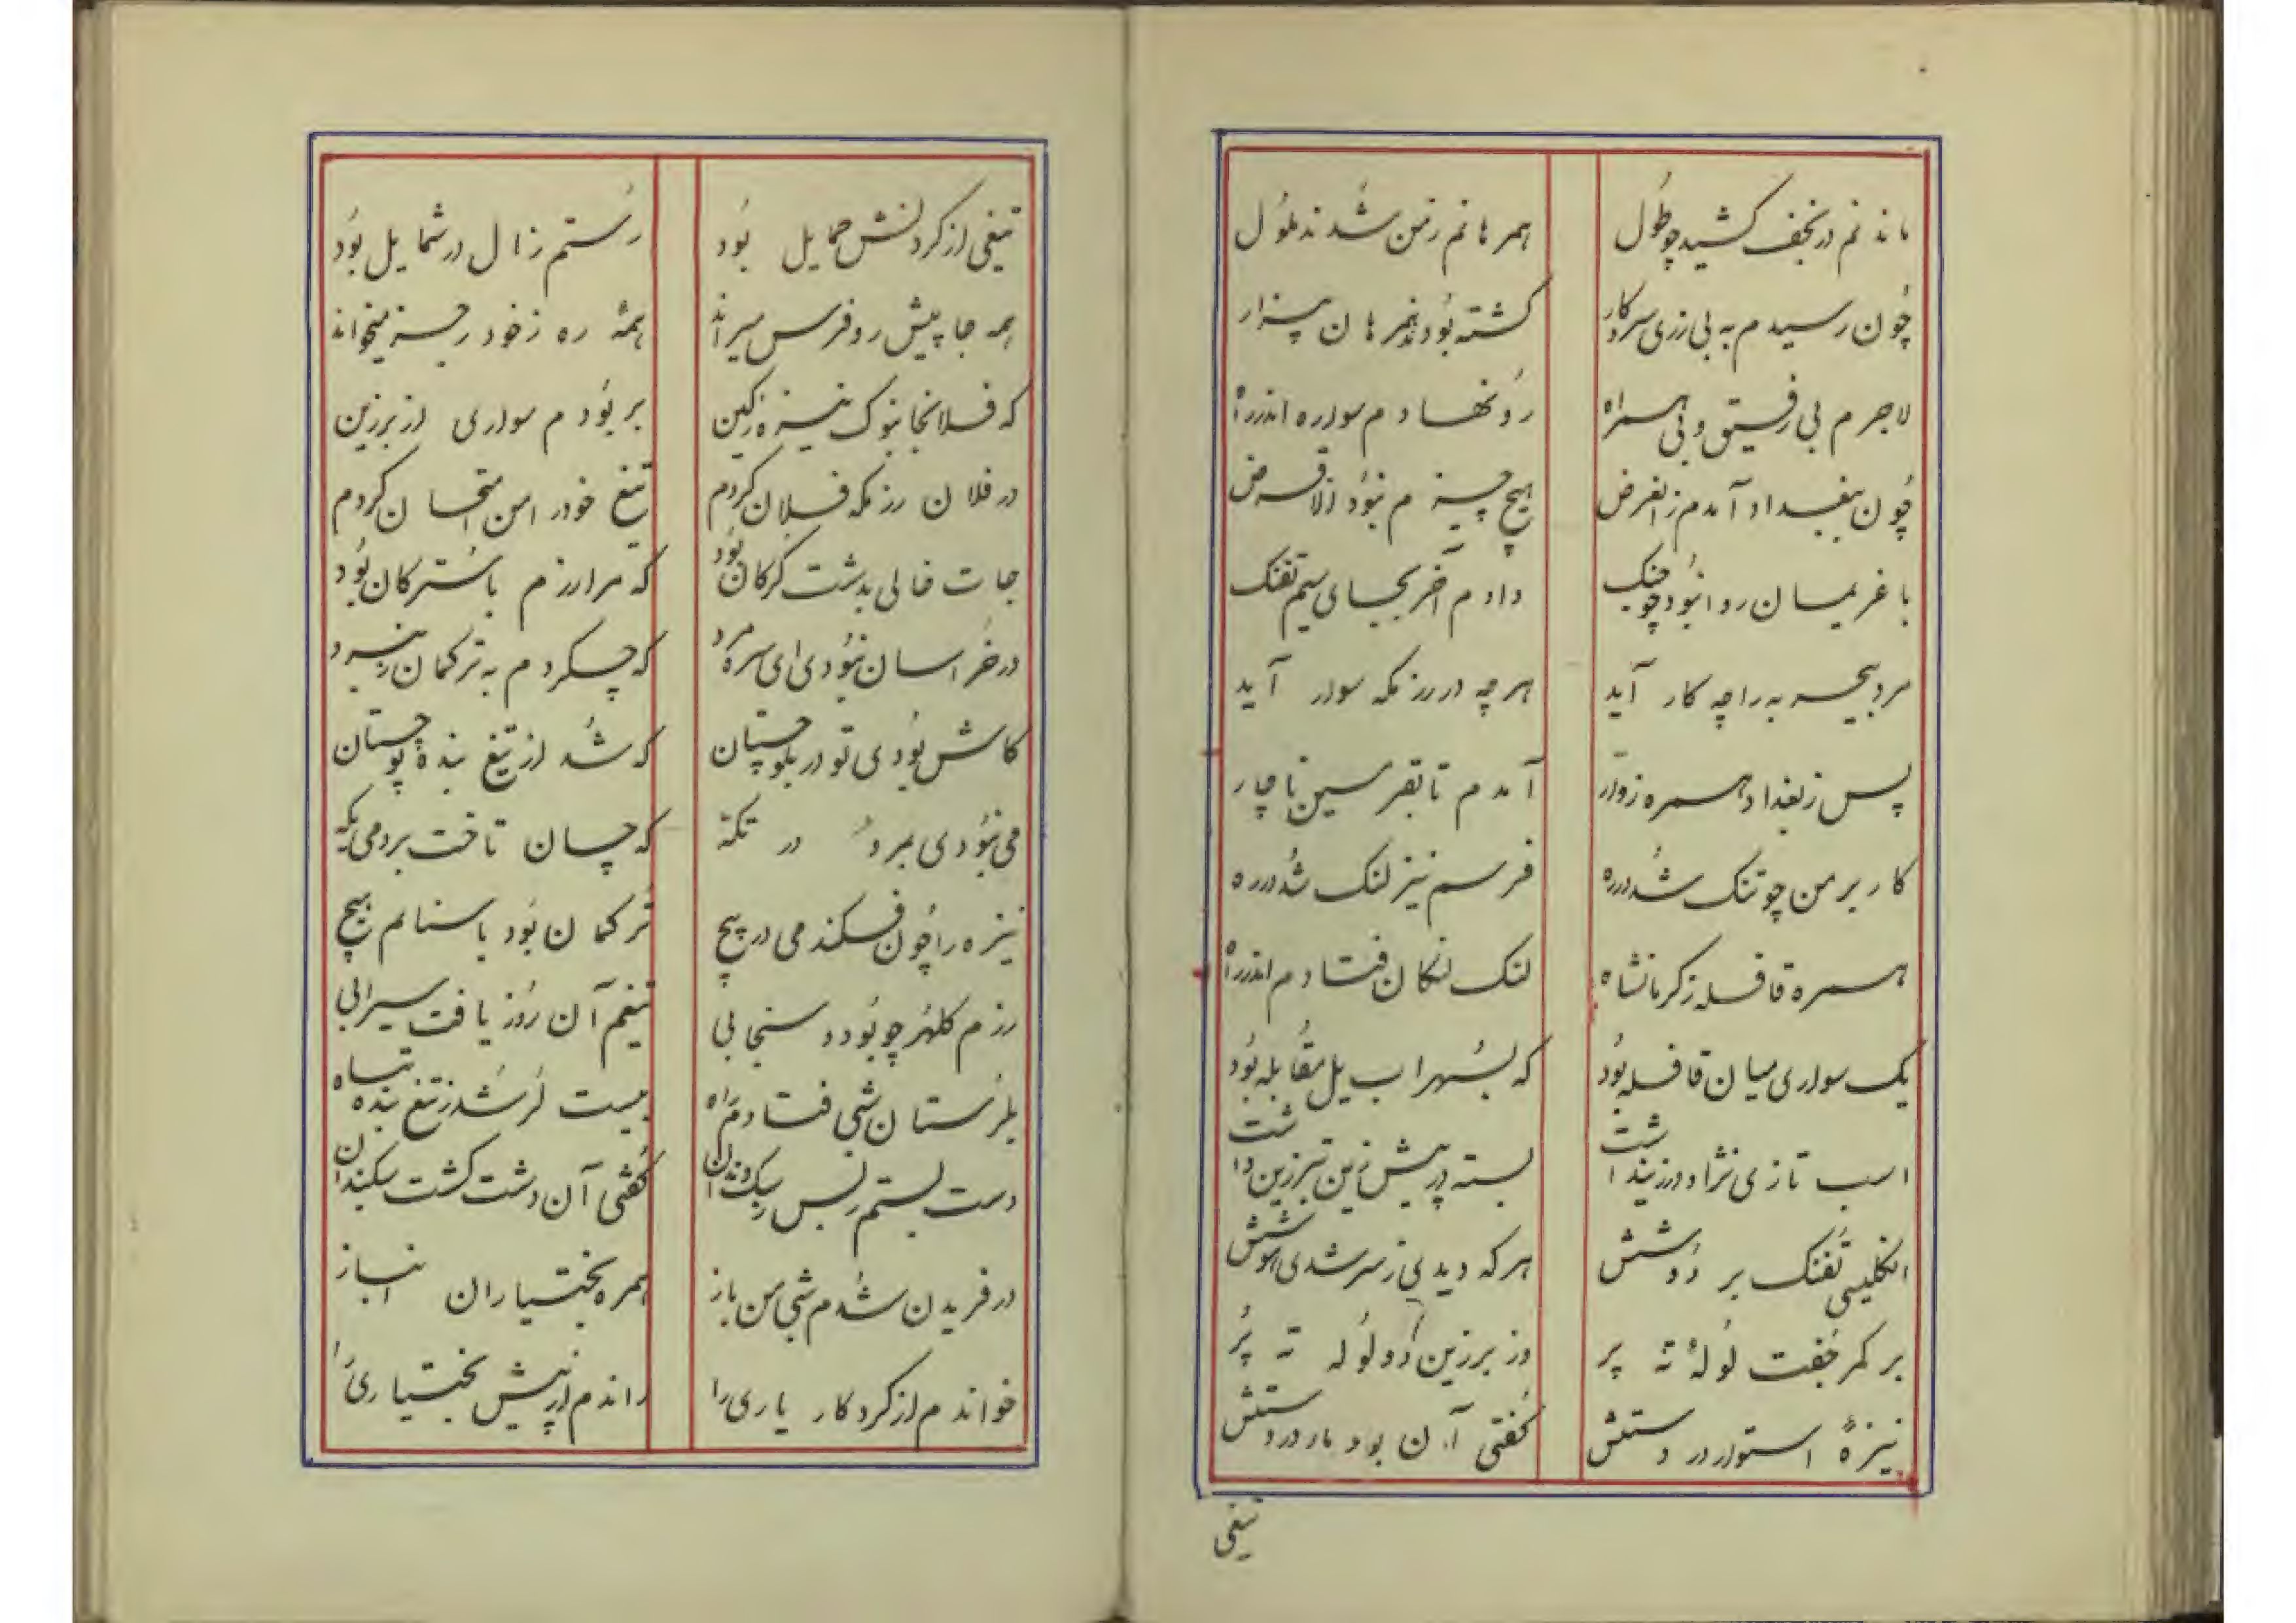 ماندنم در نجف کشید چو طول همرهانم ز من شدند ملول
چون رسیدم به بی زری سر و کار گشته بودند همرهان بیزار
لاجرم بی رفیق و بی همراه رو نهادم سواره اندر راه
چون ببغداد آمدم ز الغرض هیچ چیزم نبود الا قرض
با غریبان روا نبود چو جنگ دادم آخر بجای سیم تفنگ
مرد بیحربه را چه کار آید هرچه در رزمگه سوار آید
پس ز بغداد همره زوّار آمدم تا بقصر سین ناچار
کار بر من چو تنگ شد در ره فرسم نیز لنگ شد در ره
همره قافله ز کرمانشاه لنگ لنگان فتادم اندر راه
یک سواری میان قافله بود که بسهراب یل مقابله بود
اسب تازی نژاد در زین داشت بسته در پیش زین تبرزین داشت
انگلیسی تفنگ بر دوشش هر که دیدی ز سر شدی هوشش
بر کمر جفت لوله ته پر وز بر زین دو لوله ته پر
نیزهٔ استوار در دستش گفتی آن بود مار در دستش
تیغی
تیغی از گردنش حمایل بود رستم زال در شمایل بود
همه جا پیش رو فرس میراند همه ره ز خود رجز میخواند
که فلانجا بنوک نیزه ز کین بربودم سواری از بر زین
در فلان رزمگه فلان کردم تیغ خود را من امتحان کردم
جات خالی بدشت گرگان بود که مرا رزم با سترکان بود
در خراسان نبودی ای سره مرد که چکردم به ترکمان ز نبرد
کاش بودی تو در بلوچستان که شد از تیغ بنده پوچستان
می نبودی بمرو در تکه که چسان تاخت بردمی یکه
نیزه را چون فکندمی در پیچ ترکمان بود با سنانم هیچ
رزم کلهر چو بود و سنجابی تیغم آن روز یافت سیرابی
بلرستان شبی فتادم راه بیست لر شد ز تیغ بنده تباه
دست بستم ز بس ز سگوندان گفتی آن دشت گشت سگبندان
در فریدن شدم شبی من باز همره بختیاریان انباز
خواندم از کردگار یاری را راندم از پیش بختیاری را